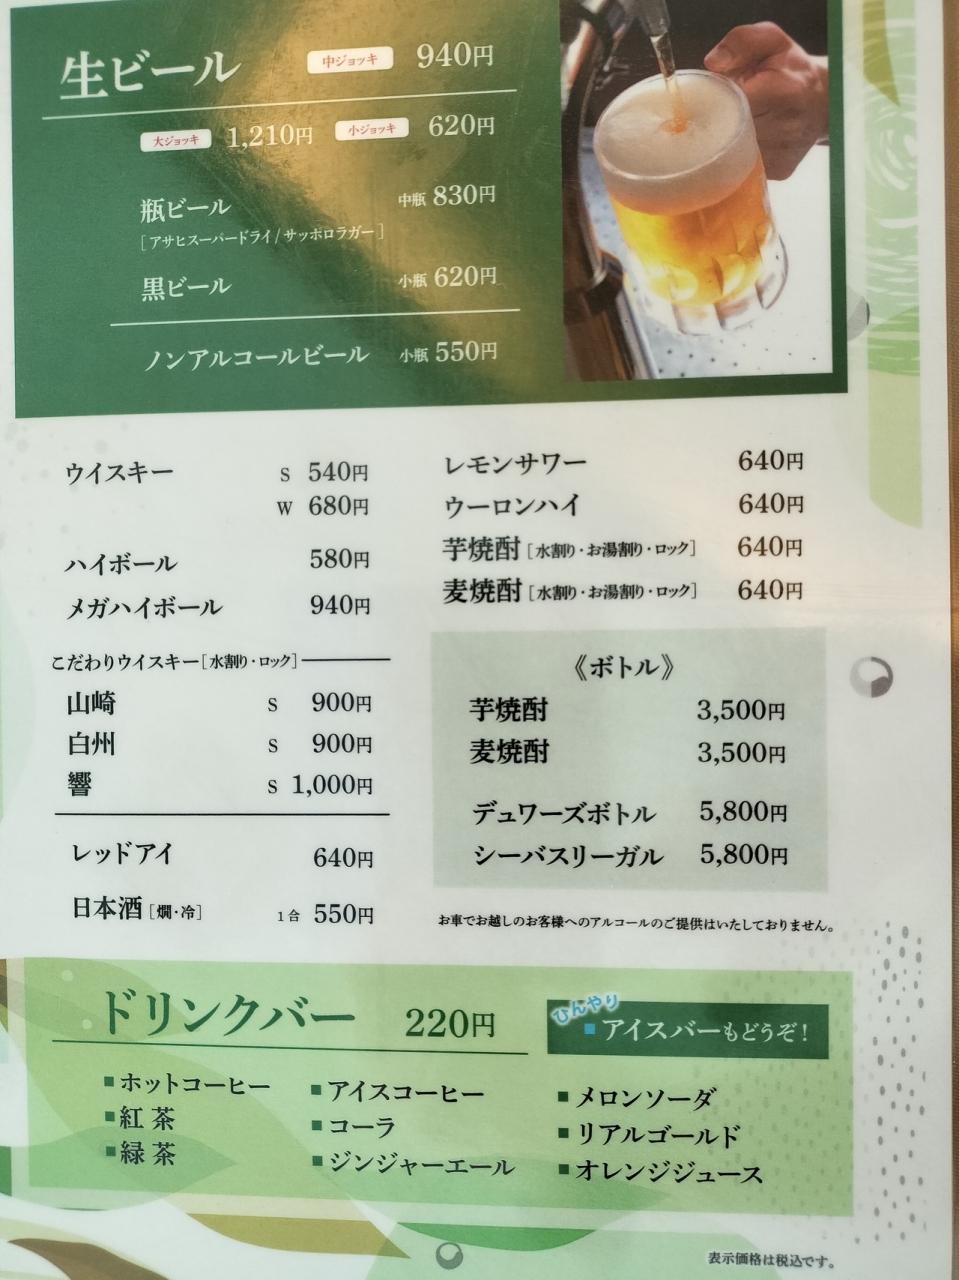 生ビール 中ジョッキ 940円
大ジョッキ 1,210円 小ジョッキ 620円
瓶ビール 中瓶 830円
[アサヒスーパードライ/サッポロラガー]
黒ビール 小瓶 620円
ノンアルコールビール 小瓶 550円
ウイスキー S 540円
W 680円
ハイボール 580円
メガハイボール 940円
こだわりウイスキー[水割り・ロック]
山崎 S 900円
白州 S 900円
響 S 1,000円
レッドアイ 640円
日本酒[燗・冷] 1合 550円
レモンサワー 640円
ウーロンハイ 640円
芋焼酎[水割り・お湯割り・ロック] 640円
麦焼酎[水割り・お湯割り・ロック] 640円
《ボトル》
芋焼酎 3,500円
麦焼酎 3,500円
デュワーズボトル 5,800円
シーバスリーガル 5,800円
お車でお越しのお客様へのアルコールのご提供はいたしておりません。
ドリンクバー 220円
ひんやり
■アイスバーもどうぞ!
■ホットコーヒー
■紅茶
■緑茶
■アイスコーヒー
■コーラ
■ジンジャーエール
■メロンソーダ
■リアルゴールド
■オレンジジュース
表示価格は税込です。